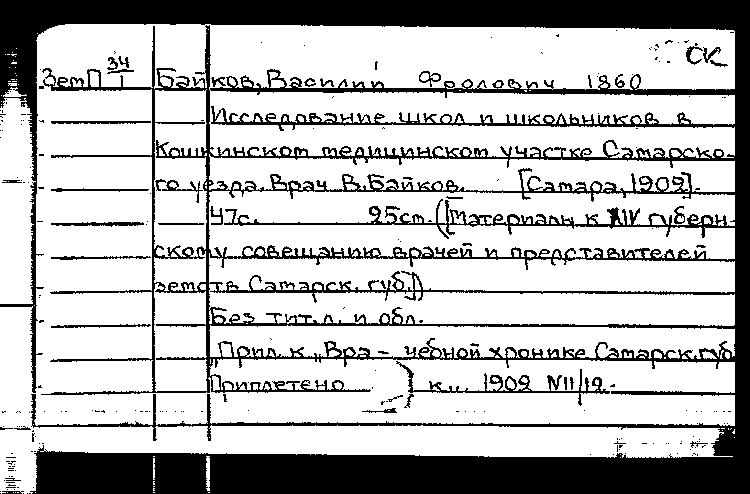 СК
ЗемП 34/1 Байков, Василий Фролович, 1860
Исследование школ и школьников в
Кошкинском медицинском участке Самарско-
го уезда. Врач В. Байков. [Самара, 1902].
47с. 25см. ([Материалы к XIV губерн-
скому совещанию врачей и представителей
земств Самарск. губ.])
Без тит.л. и обл.
„Прил. к „Вра- чебной хронике Самарск.губ
Приплетено } к „ 1902 №11/12.